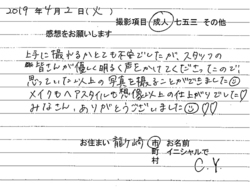 2019年4月2日(火)
撮影項目 成人 七五三 その他
感想をお願いします
上手に撮れるかとても不安でしたが、スタッフの
皆さんが優しく明るく声をかけてくださったので
思っていた以上の写真を撮ることができました
メイクもヘアスタイルも想像以上の仕上がりでした♡♡
みなさん、ありがとうございました♡♡
お住まい 龍ヶ崎 市町村 お名前 イニシャルで C.Y.